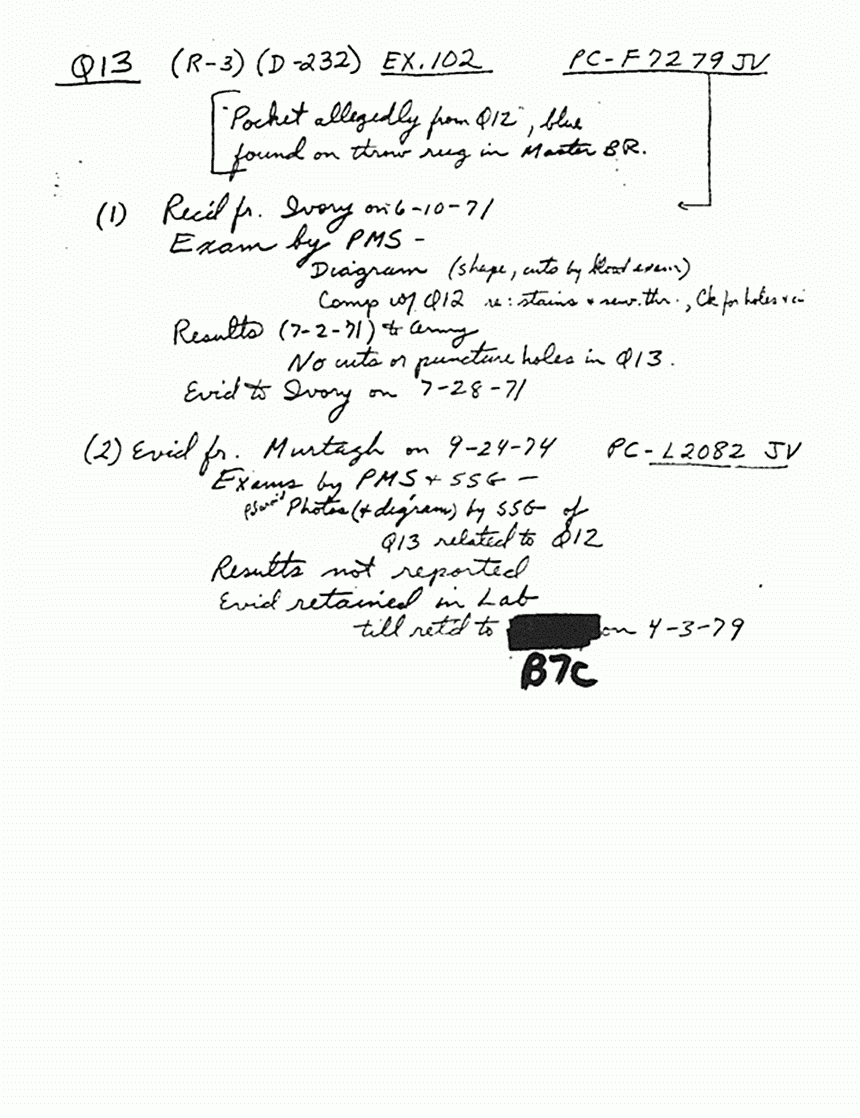 Q13 (R-3) (D-232) EX. 102 PC-F7279 JV
"Pocket allegedly from Q12", blue
found on throw rug in Master BR.
(1) Rec'd fr. Ivory on 6-10-71
Exam by PMS -
Diagram (shape, cuts by blood exam)
Comp w/ Q12 re: stains + sew. thr., Ck for holes +
Results (7-2-71) to Army
No cuts or puncture holes in Q13.
Evid to Ivory on 7-28-71
(2) Evid fr. Murtagh on 9-24-74 PC-L2082 JV
Exams by PMS + SSG -
Photos (+ diagram) by SSG of
Q13 related to Q12
Results not reported
Evid retained in Lab
till ret'd to on 4-3-79
B7C